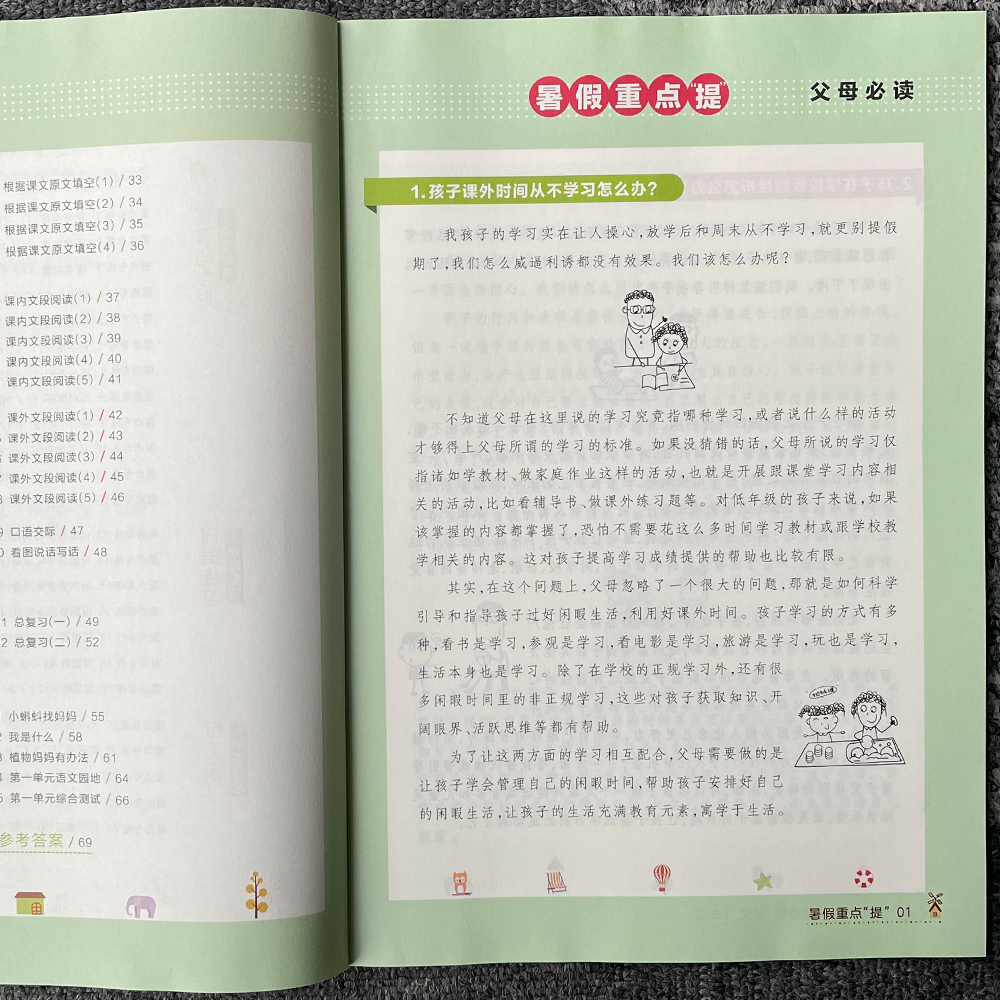 根据课文原文填空(1) / 33
根据课文原文填空(2) / 34
根据课文原文填空(3) / 35
根据课文原文填空(4) / 36
课内文段阅读(1) / 37
课内文段阅读(2) / 38
课内文段阅读(3) / 39
课内文段阅读(4) / 40
课内文段阅读(5) / 41
课外文段阅读(1) / 42
课外文段阅读(2) / 43
课外文段阅读(3) / 44
课外文段阅读(4) / 45
课外文段阅读(5) / 46
口语交际 / 47
看图说话写话 / 48
1 总复习(一) / 49
2 总复习(二) / 52
小蝌蚪找妈妈 / 55
2 我是什么 / 58
3 植物妈妈有办法 / 61
4 第一单元语文园地 / 64
5 第一单元综合测试 / 66
参考答案 / 69
暑假重点“提”
父母必读
1.孩子课外时间从不学习怎么办？
我孩子的学习实在让人操心，放学后和周末从不学习，就更别提假
期了，我们怎么威逼利诱都没有效果。我们该怎么办呢？
不知道父母在这里说的学习究竟指哪种学习，或者说什么样的活动
才够得上父母所谓的学习的标准。如果没猜错的话，父母所说的学习仅
指诸如学教材、做家庭作业这样的活动，也就是开展跟课堂学习内容相
关的活动，比如看辅导书、做课外练习题等。对低年级的孩子来说，如果
该掌握的内容都掌握了，恐怕不需要花这么多时间学习教材或跟学校教
学相关的内容。这对孩子提高学习成绩提供的帮助也比较有限。
其实，在这个问题上，父母忽略了一个很大的问题，那就是如何科学
引导和指导孩子过好闲暇生活，利用好课外时间。孩子学习的方式有多
种，看书是学习，参观是学习，看电影是学习，旅游是学习，玩也是学习，
生活本身也是学习。除了在学校的正规学习外，还有很
多闲暇时间里的非正规学习，这些对孩子获取知识、开
阔眼界、活跃思维等都有帮助。
为了让这两方面的学习相互配合，父母需要做的是
让孩子学会管理自己的闲暇时间，帮助孩子安排好自己
的闲暇生活，让孩子的生活充满教育元素，寓学于生活。
暑假重点“提” 01